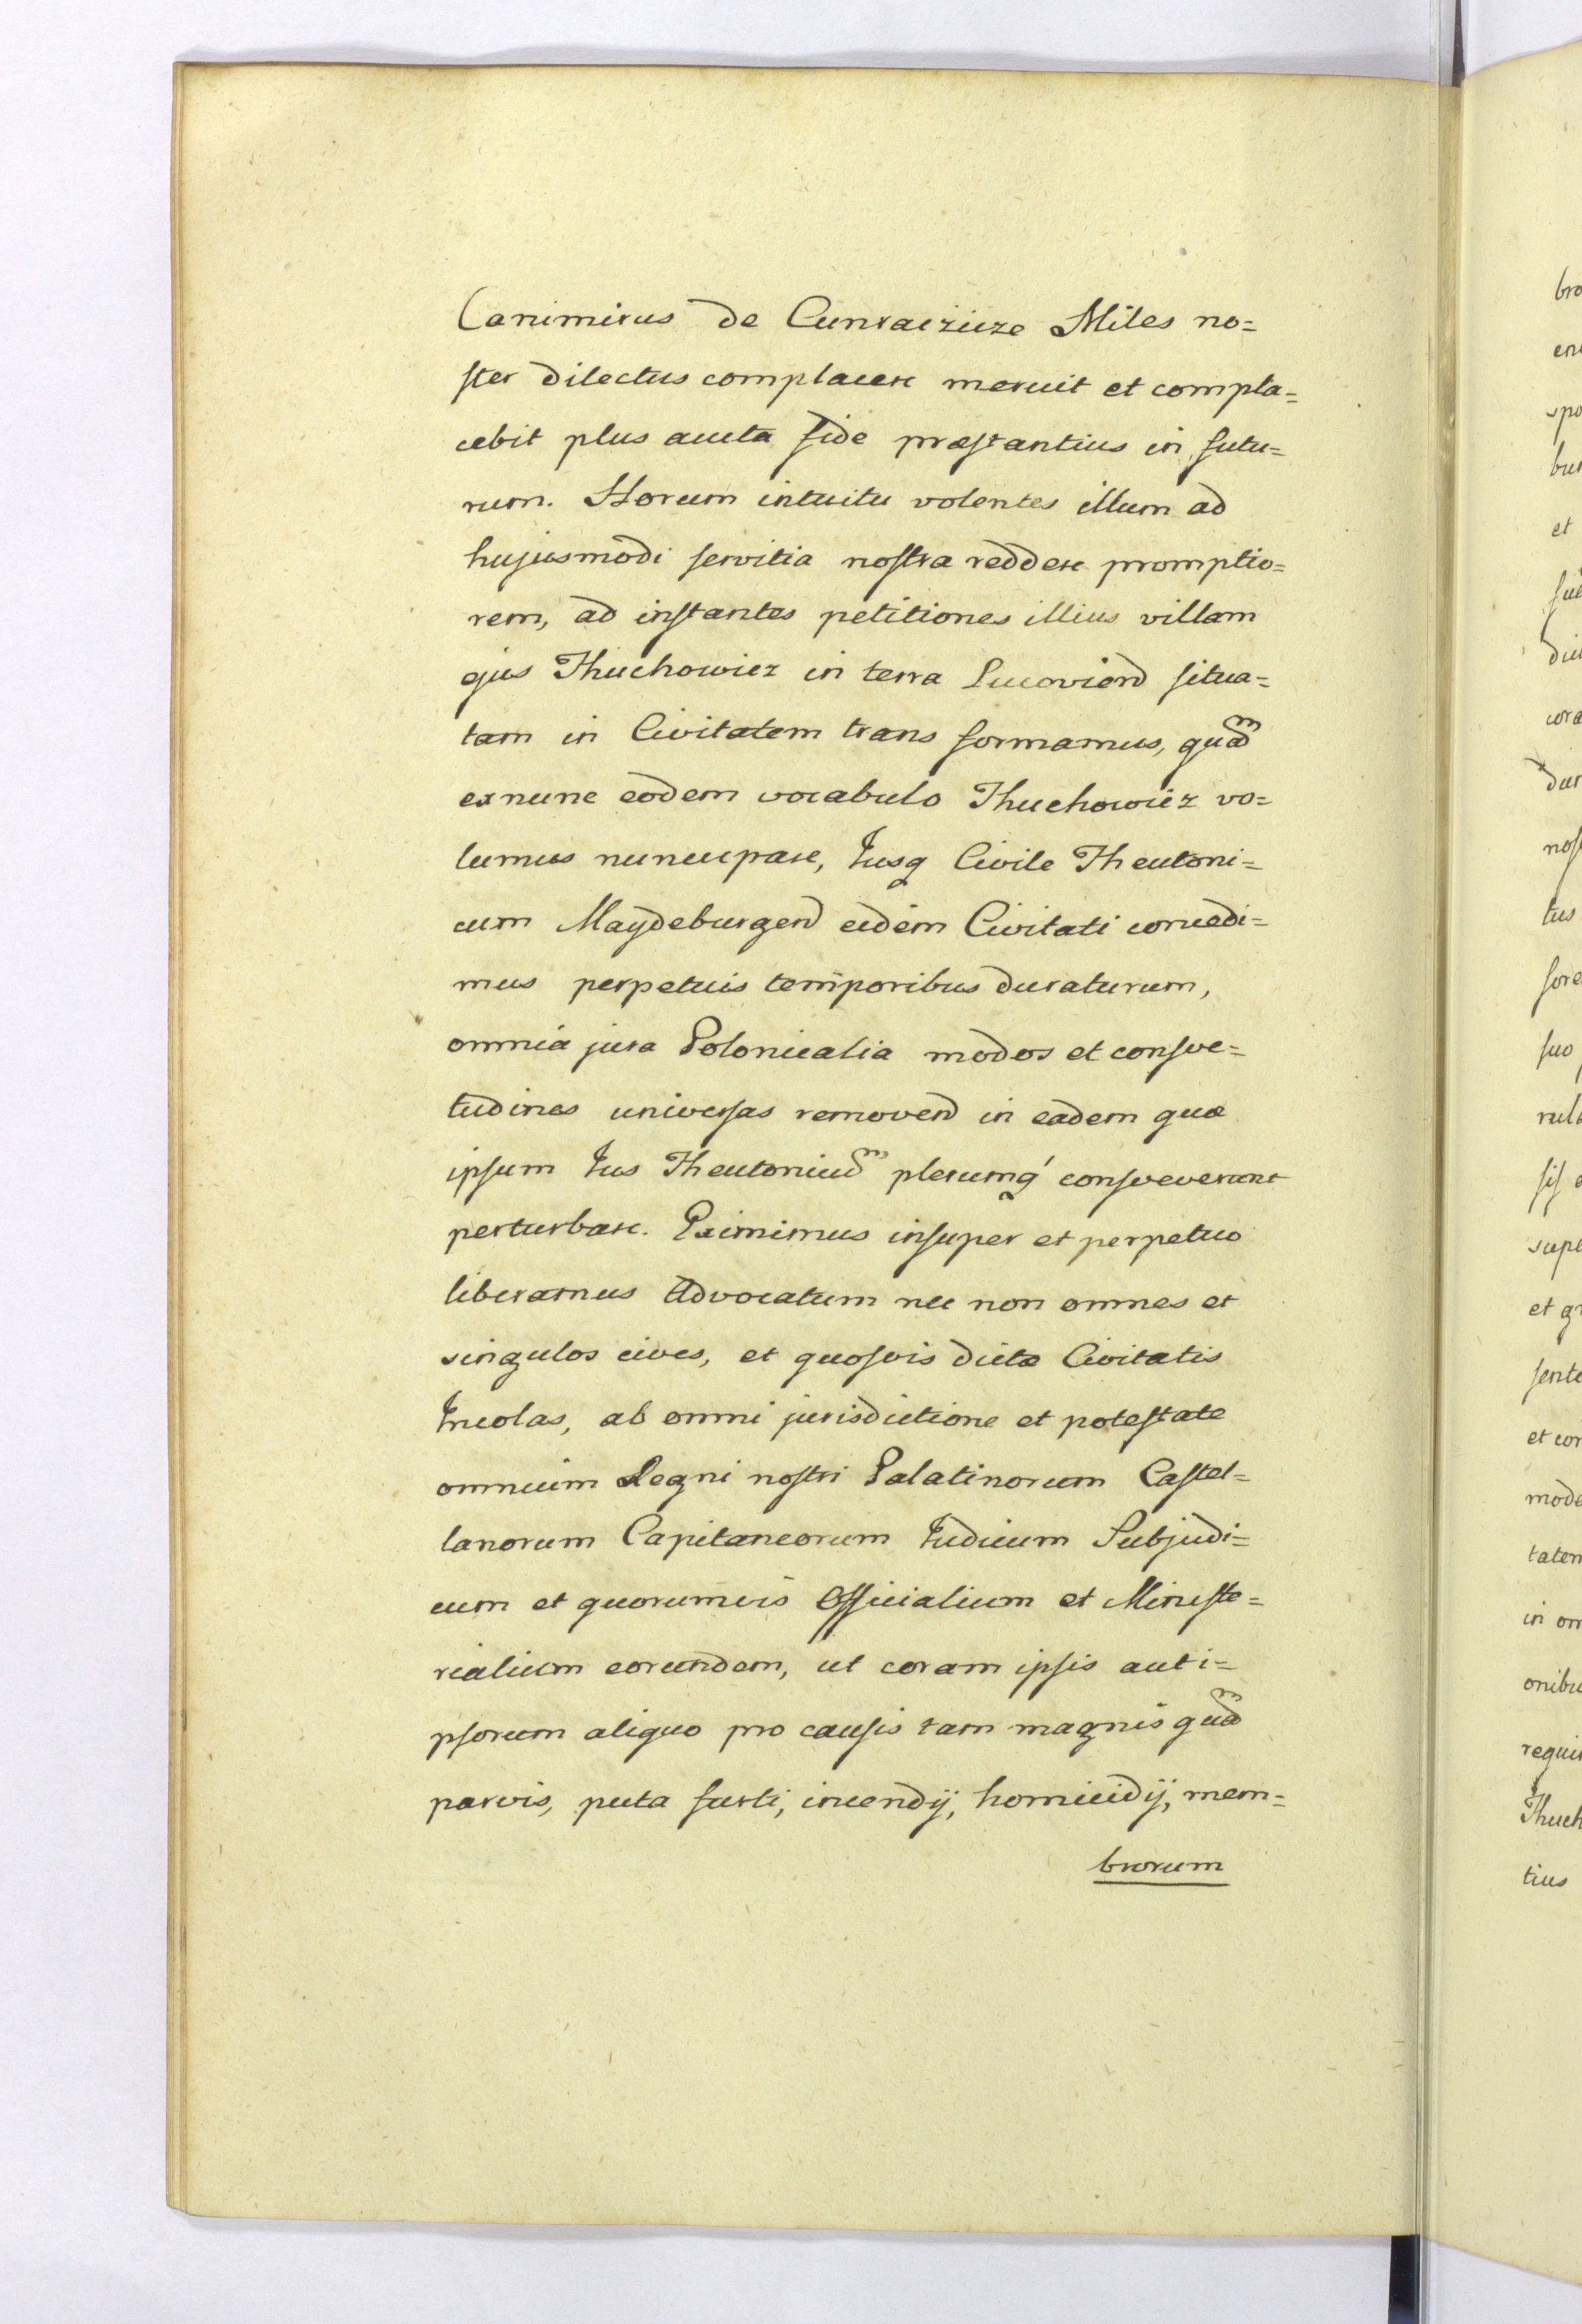 Canimirus de Cunraczicze Miles no=
ster dilectus complacere meruit et compla=
cebit plus aucta fide præstantius in futu=
rum. Horum intuitu volentes illum ad
hujusmodi servitia nostra reddere promptio=
rem, ad instantes petitiones illius villam
ejus Thuchowicz in terra Lucoviend situa=
tam in Civitatem trans formamus, quam
ex nunc eodem vocabulo Thuchowicz vo=
lumus nuncupare, Iusq Civile Theutoni=
cum Maydeburgend eidem Civitati concedi=
mus perpetuis temporibus duraturum,
omnia jura Polonicalia modos et consve=
tudines universas removend in eadem quæ
ipsum Ius Theutonicum plerumq consveverunt
perturbare. Eximimus insuper et perpetuo
liberamus Advocatum nec non omnes et
singulos cives, et quosvis dictæ Civitatis
Incolas, ab omni jurisdictione et potestate
omnium Regni nostri Palatinorum Castel=
lanorum Capitaneorum Iudicum Subjudi=
cum et quorumvis Officialium et Ministe=
rialium eorundem, ut coram ipsis aut i=
psorum aliquo pro causis tam magnis quam
parvis, puta furti, incendij, homicidij, mem=
brorum
bro
en
spo
bus
et
cora
dur
nos
tus
fore
suo
rula
sis
supe
et q
sente
et cor
mode
taten
in om
onibu
requi
Thuch
tius